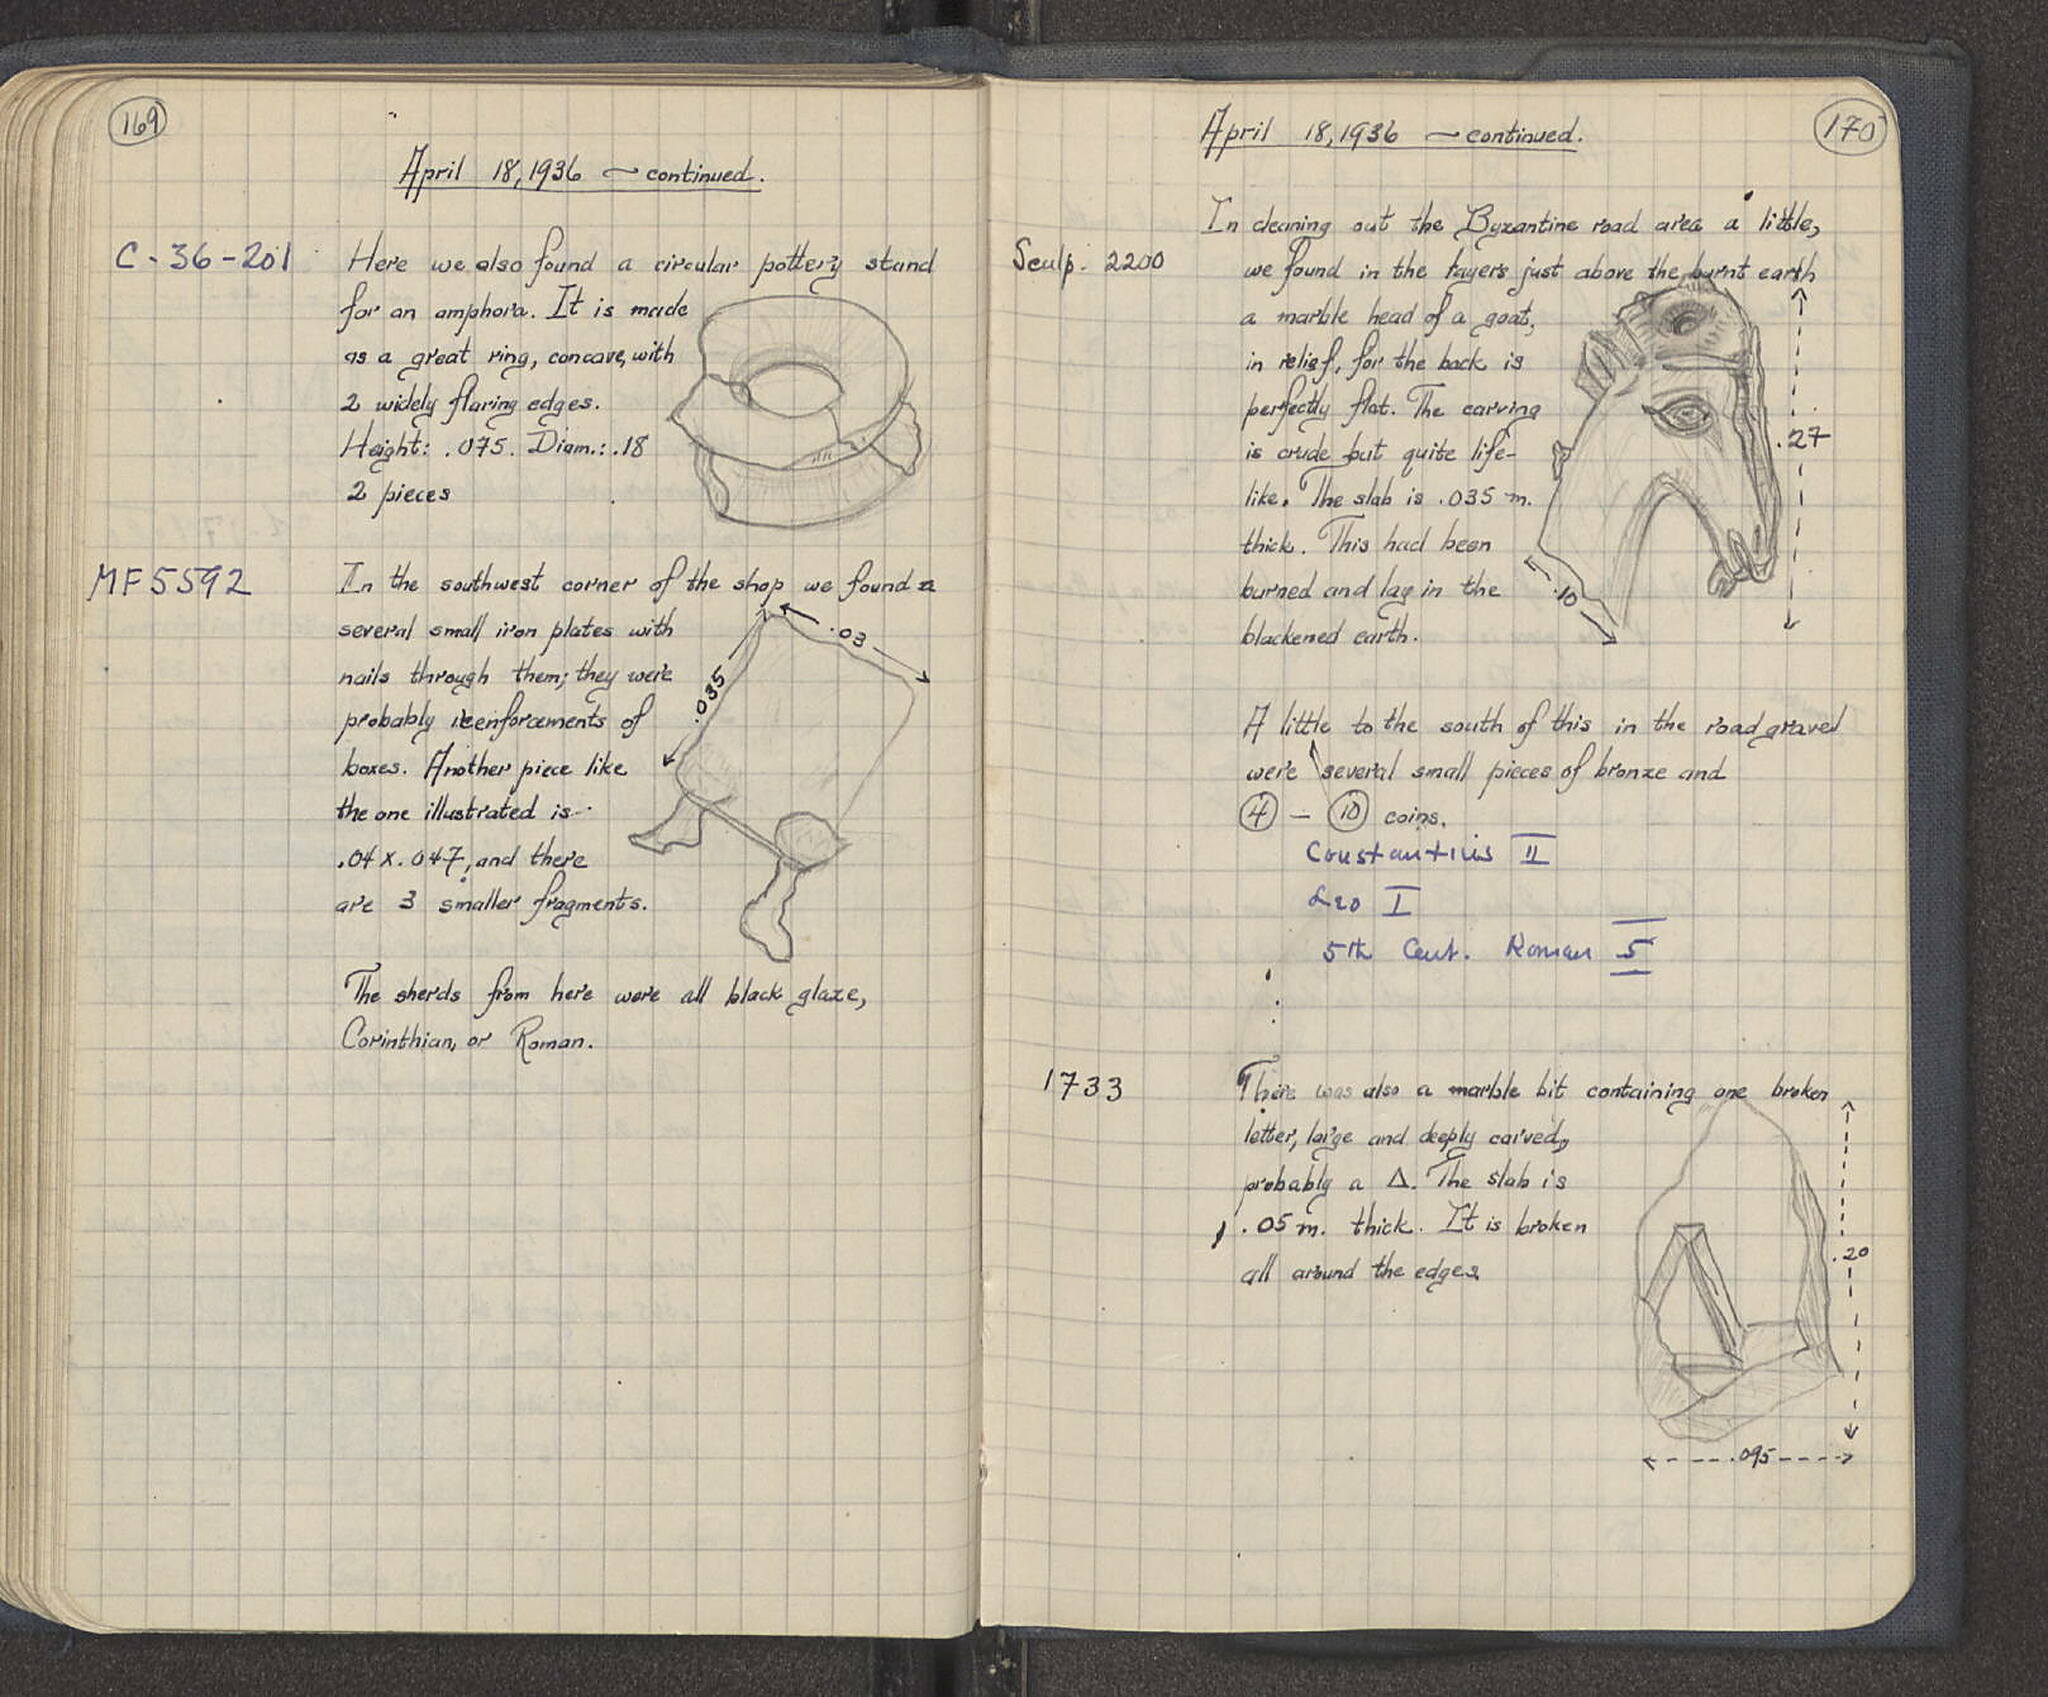 169
April 18, 1936 — continued.
C-36-201
Here we also found a circular pottery stand
for an amphora. It is made
as a great ring, concave, with
2 widely flaring edges.
Height: .075. Diam.: .18
2 pieces
MF 5592
In the southwest corner of the shop we found
several small iron plates with
nails through them; they were
probably reenforcements of
boxes. Another piece like
the one illustrated is
.04 x .047, and there
are 3 smaller fragments.
.03
.035
The sherds from here were all black glaze,
Corinthian, or Roman.
170
April 18, 1936 — continued.
Sculp. 2200
In cleaning out the Byzantine road area a little,
we found in the layers just above the burnt earth
a marble head of a goat,
in relief, for the back is
perfectly flat. The carving
is crude but quite life-
like. The slab is .035 m.
thick. This had been
burned and lay in the
blackened earth.
.27
.10
A little to the south of this in the road gravel
were several small pieces of bronze and
4 — 10 coins.
Constantius II
Leo I
5th Cent. Roman 5
1733
There was also a marble bit containing one broken
letter, large and deeply carved,
probably a Δ. The slab is
.05 m. thick. It is broken
all around the edges.
.20
.095